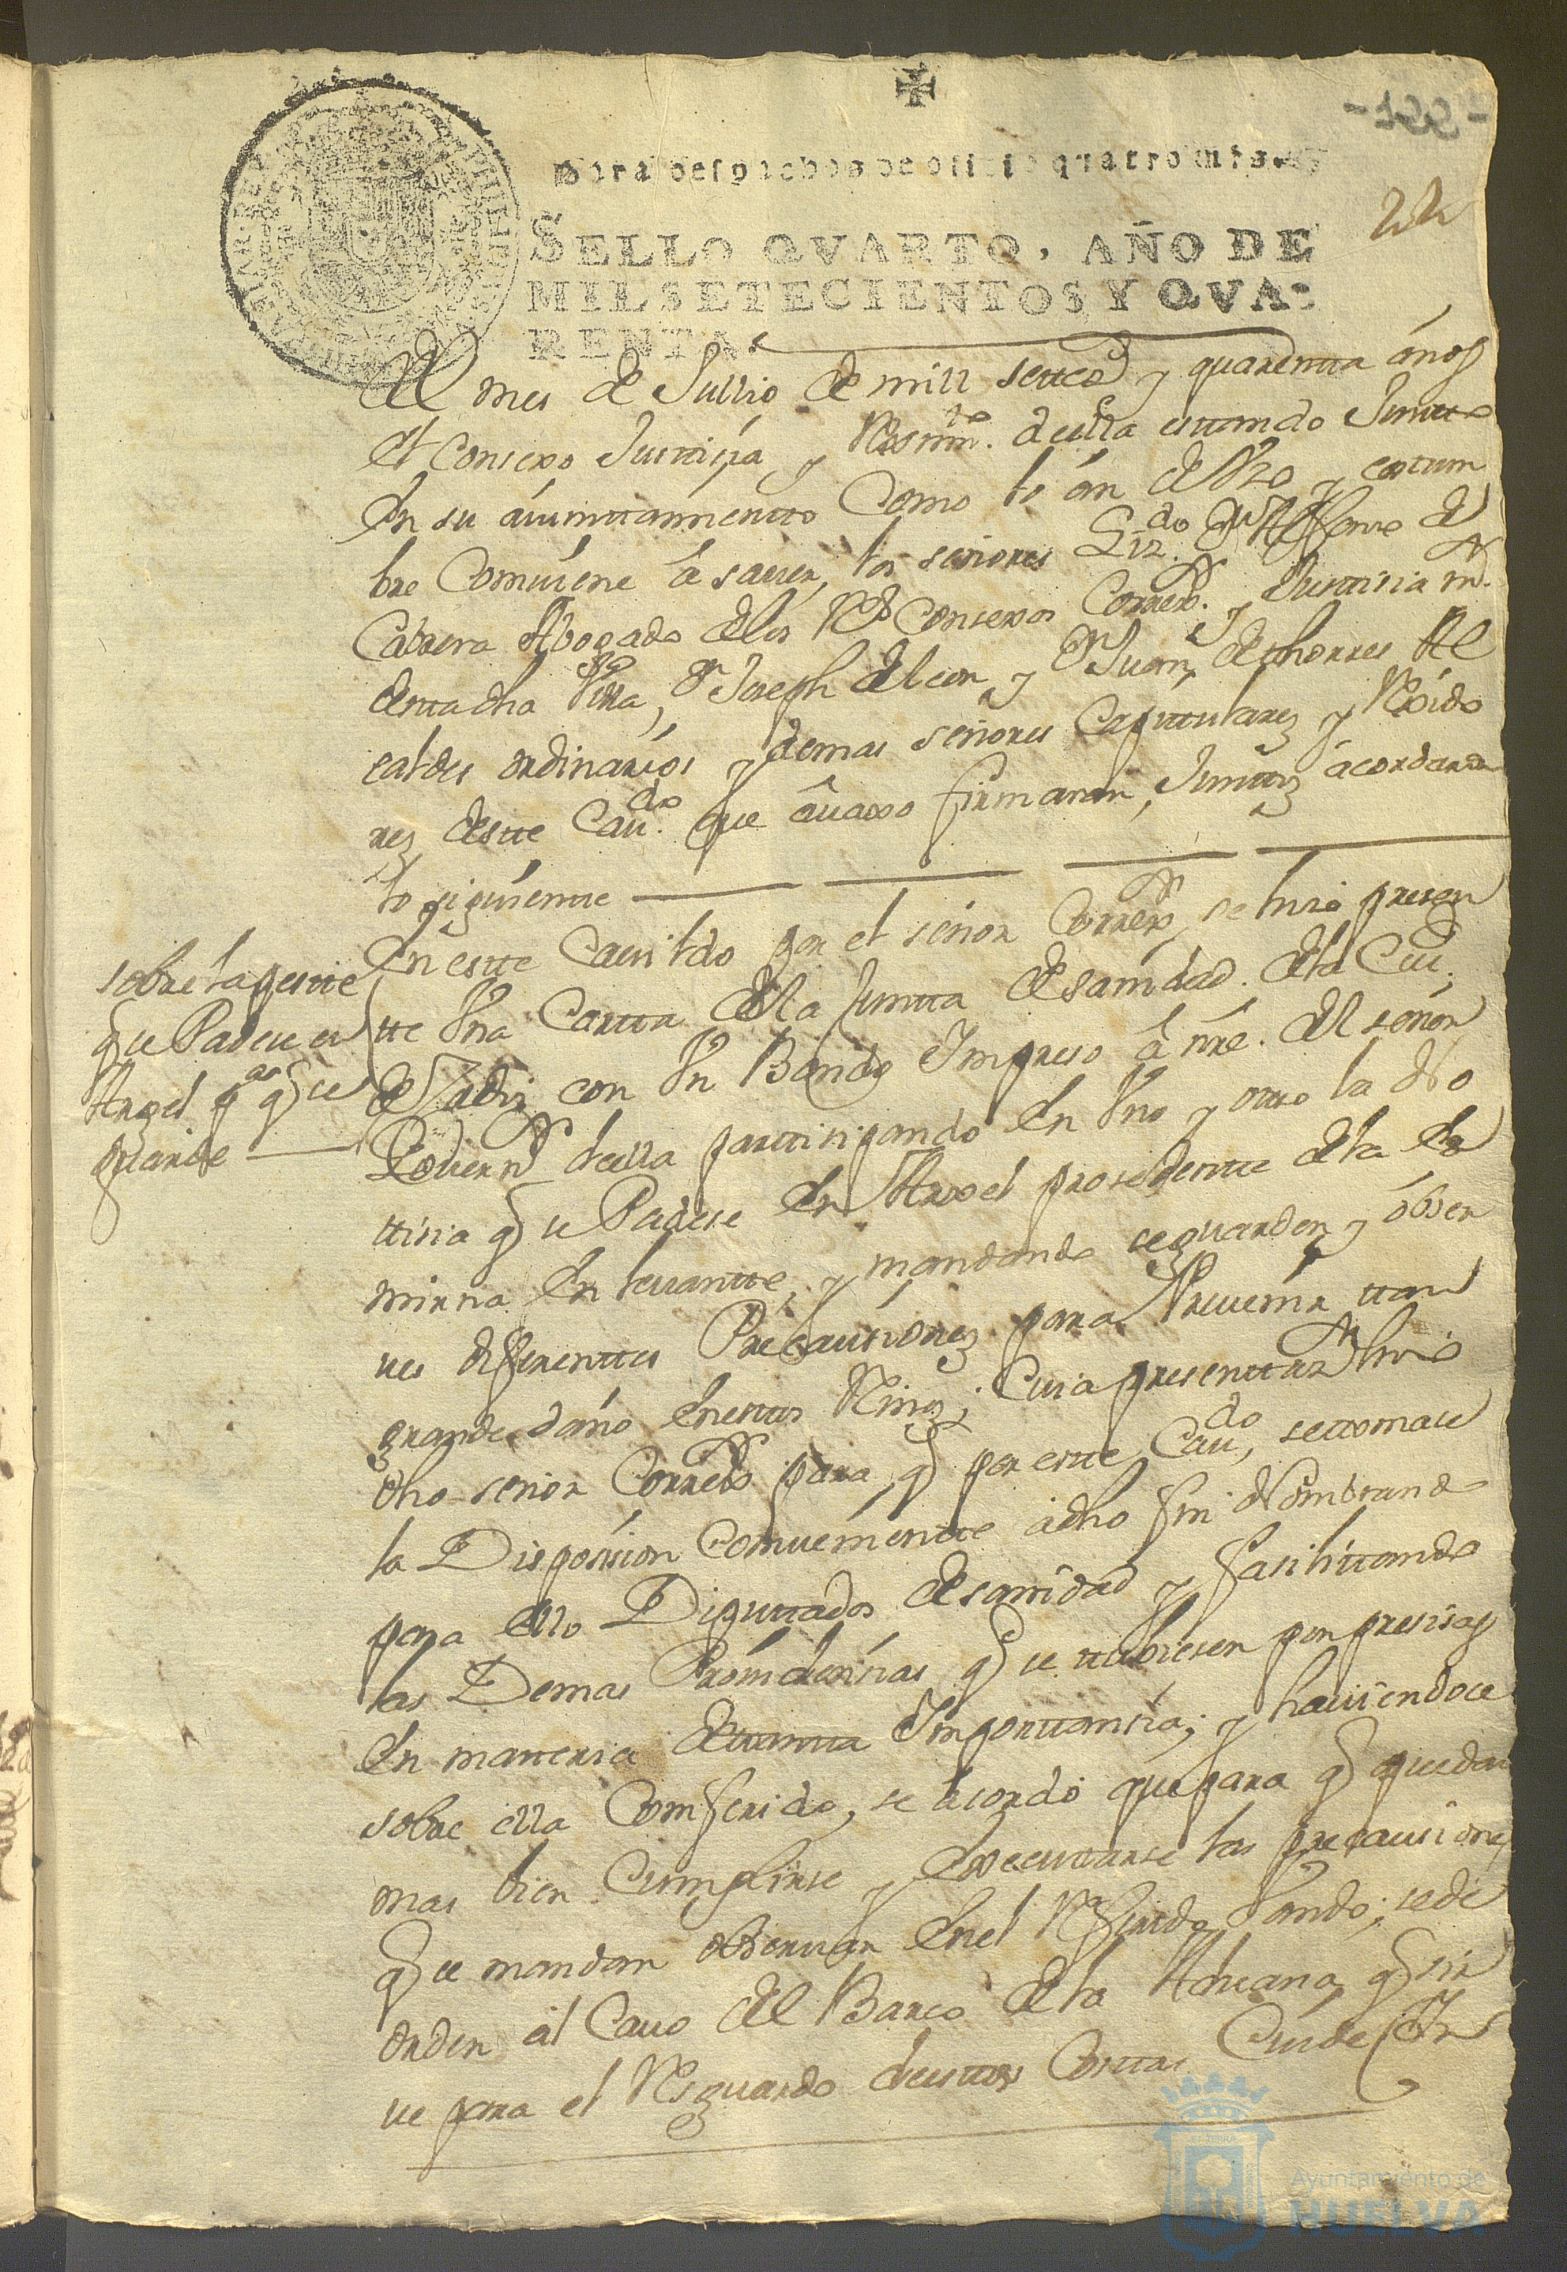 Para despachos de oficio quatro mrs.
22
SELLO QVARTO, AÑO DE
MIL SETECIENTOS Y QVA-
RENTA.
del mes de Jullio de mill settecs y quarentta años
el Consexo Justtiçia y Rexmto. de ella esttando Juntto
en su aiunttamientto Como lo an de Vso y costum
bre Comviene á sauer, los señores Lizdo. Dn Alfonso de
Cabrera Abogado de los Rs Consexos Correxr. y Justtisia mr.
de esta dha Villa, Dn Joseph de leon y Dn Juan de thorres Al
caldes ordinarios y demas señores Capittulares y Rexido
res destte Caudo. que auaxo firmaran, Junttos acordaron
lo siguientte
sobre la pestte
que Padese en
Argel pa que se
guarde
En estte Cauildo por el señor Correxr se hiso presen
tte Vna Cartta de la Juntta de sanidad de la Ciud.
de Cadiz con Vn Bando Impreso á nre. del señor
Governr de ella partisipando en Vno y otro la no
ttisia que se Padese en Arxel prosedentte de la es
mirna en levantte, y mandando se guarden y obser
ven diferenttes Precausiones para Prevenir ttan
grande daño en esttos Rinos; Cuia presenttazn hiso
dho señor Correxr para que por estte Caudo, se ttomase
la Disposision Comvenientte a dho fin Nombrando
para ello Diputtados de sanidad y fasilittando
las Demas Providensias que se ttubiesen por presisas
en matteria de ttantta Importtansia; y haviendose
sobre ella Comferido, se acordó que para que puedan
mas bien Cumplirse y executtarse las precausiones
que se mandan observar en el Referido Vando; se dé
orden al Cavo del Barco de la Aduana que sir
ve para el Resguardo de esttas Costtas Cuide In
Ayuntamiento de
HUELVA